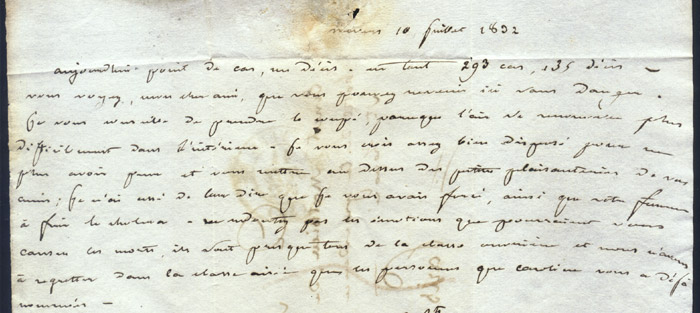 10 juillet 1832
aujourdhui point de cas, un décès - en tout 293 cas, 135 décès -
vous voyez, mon cher ami, que vous pouvez revenir ici sans danger.
Je vous conseille de prendre le coupé, parceque l'air se renouvelle plus
difficilement dans l'intérieur - Je vous crois assez bien disposé pour ne
plus avoir peur et vous mettre au dessus des petites plaisanteries de vos
amis; Je n'ai cessé de leur dire que Je vous avais forcé, ainsi que votre femme
à fuir le cholera - ne redoutez pas les émotions que pourraient vous
causer les morts, ils sont presque tous de la classe ouvrière et nous n'avons
à regretter dans la classe aisée que les personnes que caroline vous a déjà
nommées -